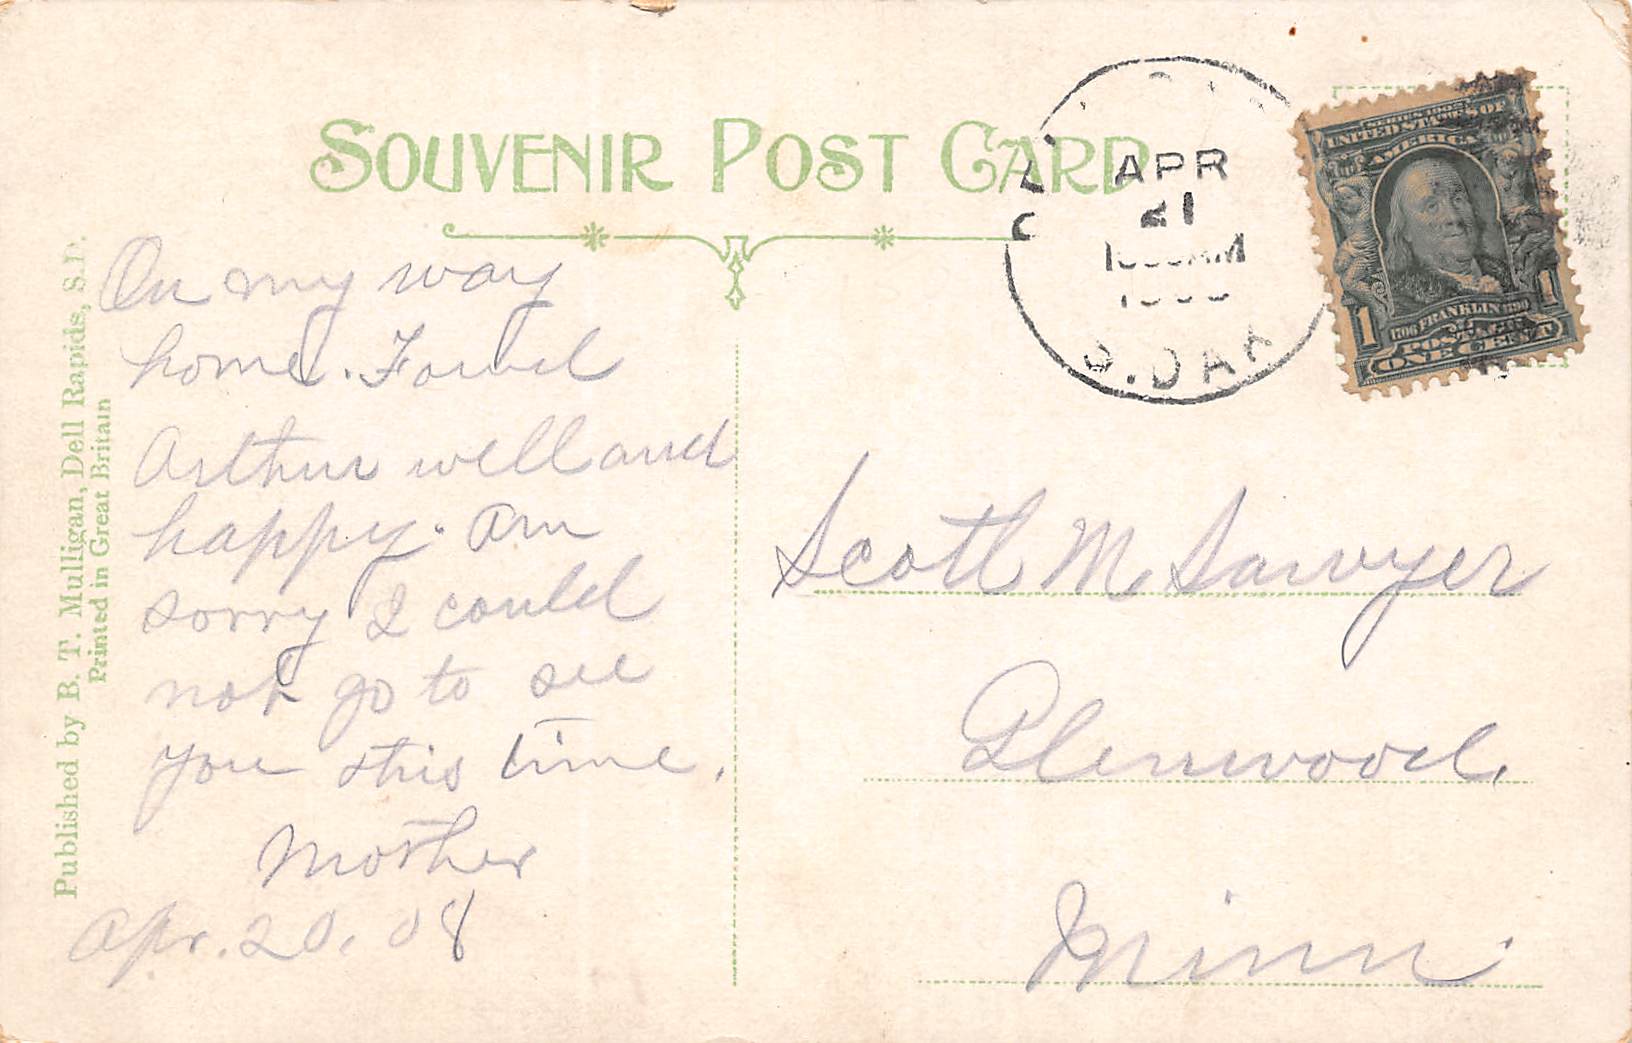 SOUVENIR POST CARD
Published by B. T. Mulligan, Dell Rapids, S.D.
Printed in Great Britain
On my way
home. Found
Arthur well and
happy. Am
sorry I could
not go to see
you this time.
Mother
Apr. 20, 08
APR
21
AM
S. DAK
SERIES 1902
UNITED STATES OF
AMERICA
1706 FRANKLIN 1790
1 1
POSTAGE
ONE CENT
Scott M Sawyer
Glenwood,
Minn.